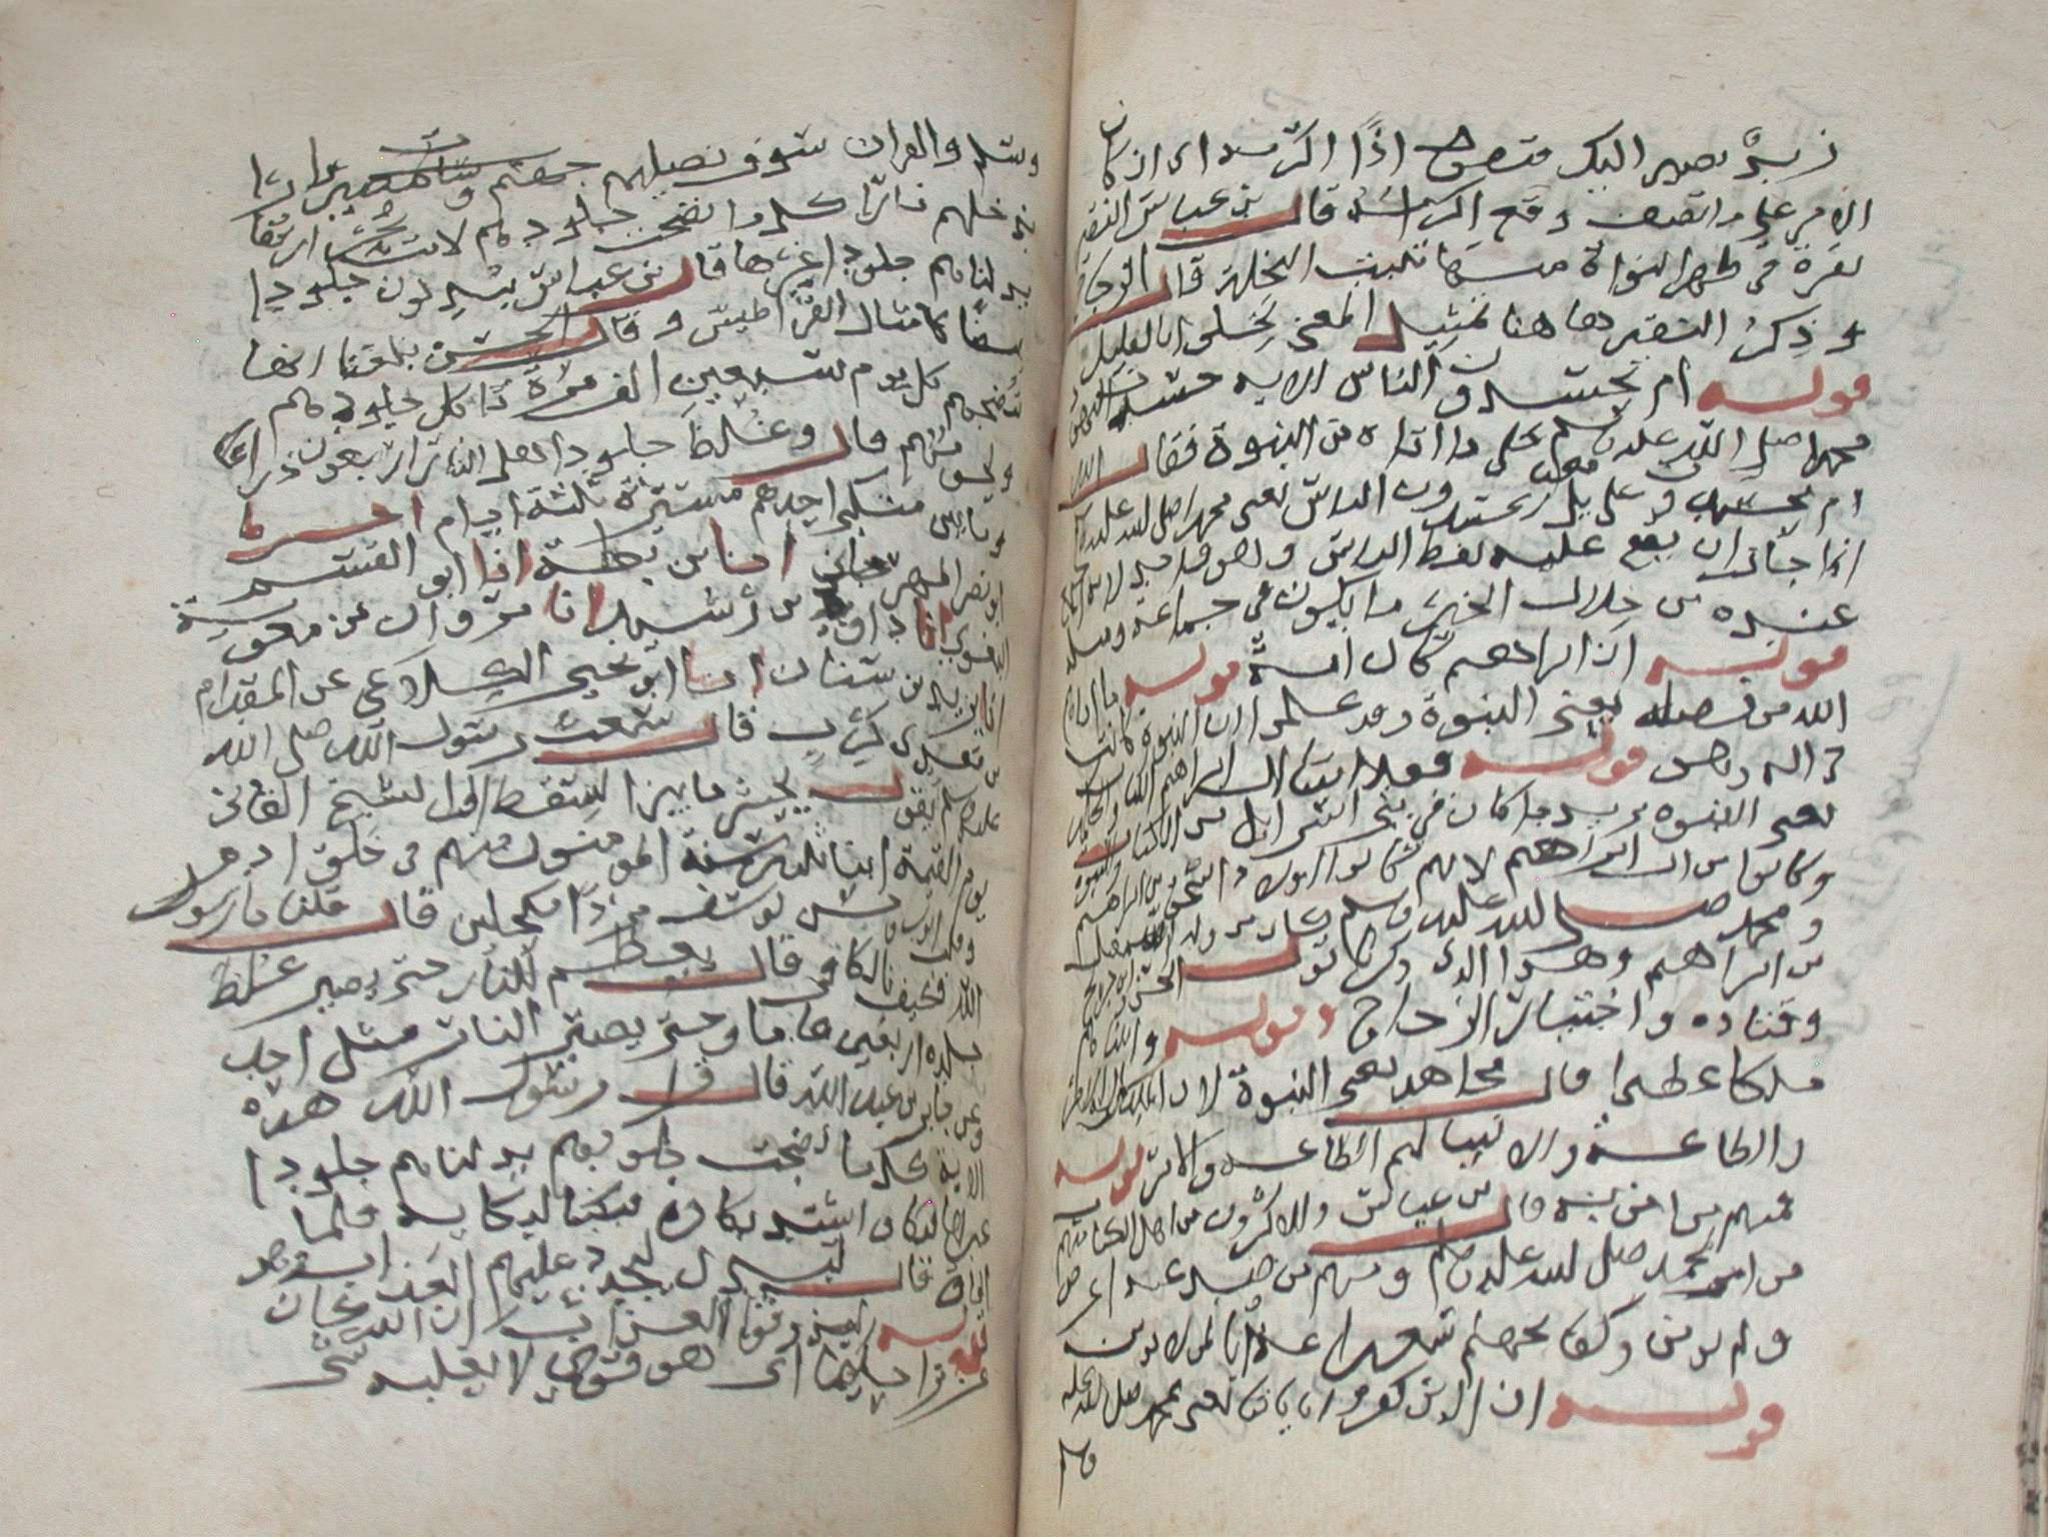 زيد يصير اليك منصوب اذًا اكرمه اي ان كان
الامر على ما تصف وقع اكرامه قال بن عباس النقير
نقرة في ظهر النواة منها تنبت النخلة قال الزجاج
وذِكرُ النقير هاهنا تمثيل المعنى بخلوا بالقليل
قوله ام يحسدون الناس الايه حسدت اليهود
محمدا صلى الله عليه وسلم على ما اتاه من النبوة فقال الله
ام يحسدون على بل يحسدون الناس يعنى محمدا صلى الله عليه وسلم
انما جاز ان يقع عليه لفظ الناس وهو واحد لانه اجتمع
عنده من خلال الخير ما يكون في جماعة ومثله
قوله ان ابراهيم كان امة قوله ما اتاهم
الله من فضله يعنى النبوة وقد علموا ان النبوة كانت
في اله وهو قوله فقد اتينا ال ابراهيم الكتاب والحكمة
يعنى النبوه يريد ما كان في بني اسرائيل من الكتاب والنبوة
وكانوا من ال ابراهيم لانهم كانوا اولاد اسحق بن ابراهيم
ومحمد صلى الله عليه وسلم كان من ولد اسمعيل
بن ابراهيم وهذا الذي ذكرنا قول الحسن وابن جريج
وقتاده واختيار الزجاج وقوله واتيناهم
ملكا عظيما قال مجاهد يعنى النبوة لان الملك لمن له الامر
والطاعة والانبيا لهم الطاعه والامر قوله
فمنهم من امن به قال بن عباس والاكثرون من اهل الكتاب منهم
من امن بمحمد صلى الله عليه وسلم ومنهم من صد عنه اعرض
ولم يومن وكفى بجهنم سعيرا عذابا لمن لا يومن
قوله ان الذين كفروا باياتنا يعنى بمحمد صلى الله عليه
وسلم
وسلم والقران سوف نصليهم جهنم نارا
ندخلهم نارًا كلما نضجت جلودهم لانت ارتفا
بدلناهم جلودا غيرها قال بن عباس يبدلون جلودا
بيضًا كامثال القراطيس وقال الحسن بلغنا انها
تنضجهم كل يوم سبعين الف مرة تاكل جلودهم
ولحومهم قال وغلظ جلود اهل النار اربعون ذراعا
وما بين منكبي احدهم مسيرة ثلثة ايام اخبرنا
ابو نصر المهرجاني انا بن بطة انا ابو القسم
البغوي انا داود بن رشيد انا مروان بن معوية
انا يزيد بن سنان انا ابو يحيى الكلاعي عن المقدام
بن معدي كرب قال سمعت رسول الله صلى الله
عليه وسلم يقول يحشر ما بين السقط الى الشيخ الفاني
يوم القيمة ابنا ثلاثين سنة المومنون منهم في خلق ادم
وقلب ايوب وحسن يوسف مردًا مكحلين قال قلنا يا رسول
الله فكيف بالكافر قال يعظم للنار حتى يصير غلظ
جلده اربعين باعا وحتى يصير الناب مثل احد
وعن جابر بن عبد الله قال قرا رسول الله هذه
الاية كلما نضجت جلودهم بدلناهم جلودا
غيرها
قال لنبدل لنجدد عليهم العذاب
قوله ليذوقوا العذاب ان الله كان
عزيزا حكيما اى هو قوي لا يغلبه شى